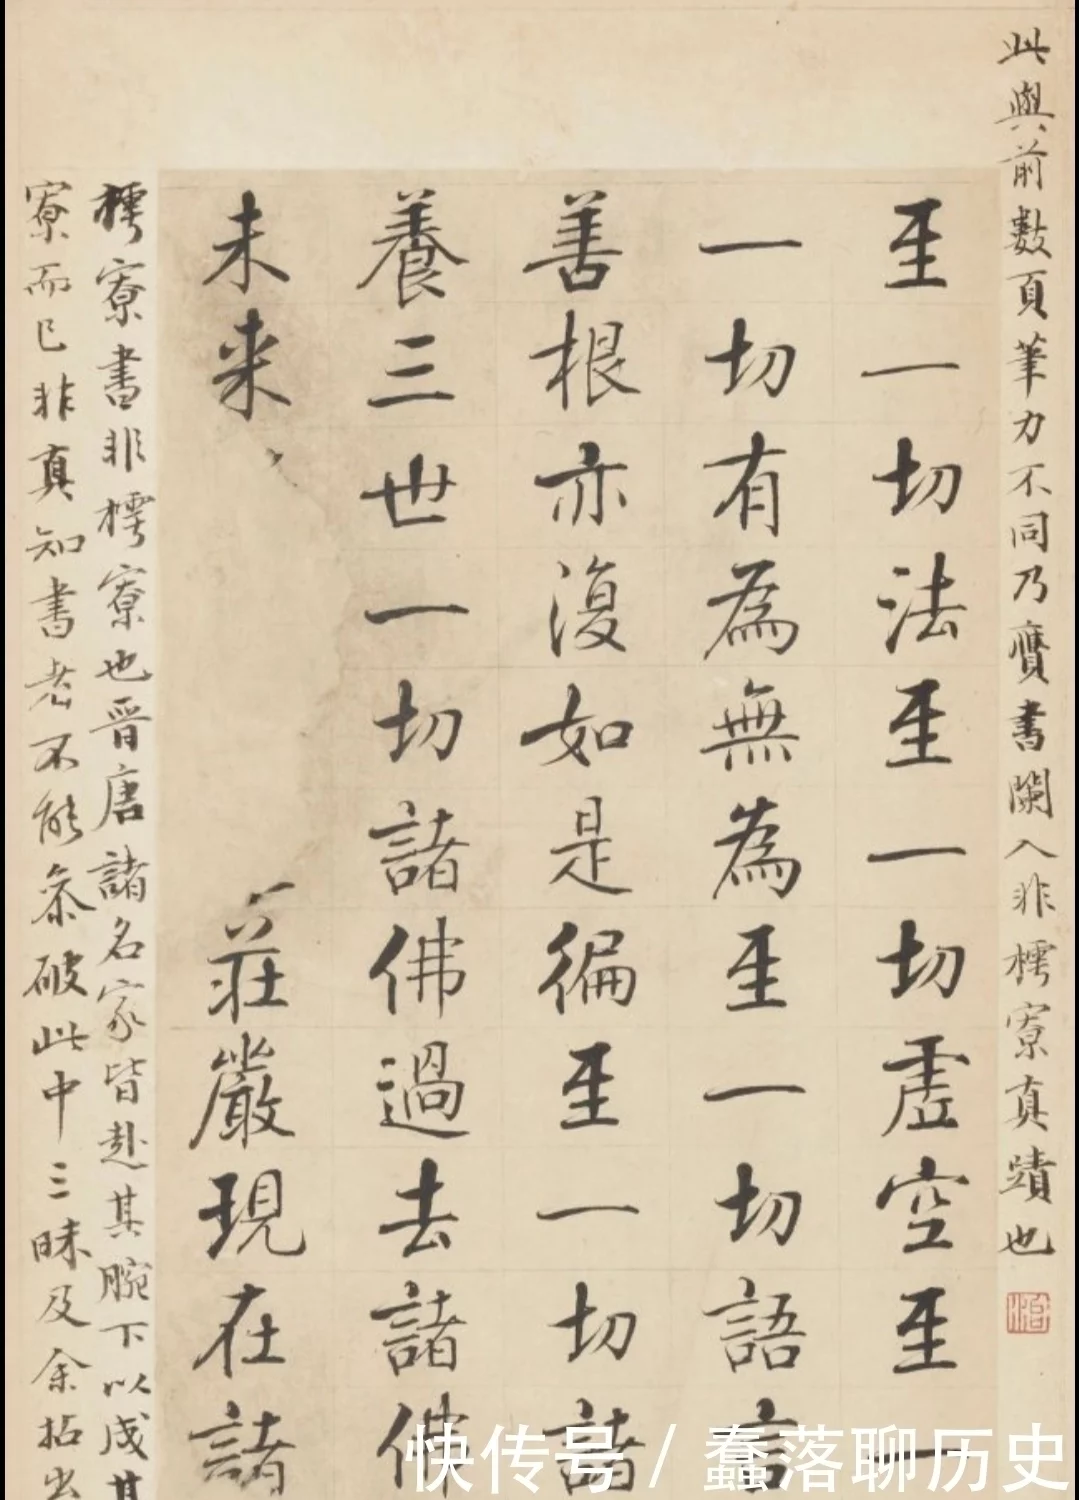 此與前數頁筆力不同乃贗書闌入非樗寮真蹟也
至一切法至一切虛空至一
一切有為無為至一切語言
善根亦復如是徧至一切諸
養三世一切諸佛過去諸佛
未来
莊嚴現在諸
樗寮書非樗寮也晉唐諸名家皆赴其腕下以成其
寮而已非真知書者不能叅破此中三昧及余拈出
快传号 / 蠢落聊历史